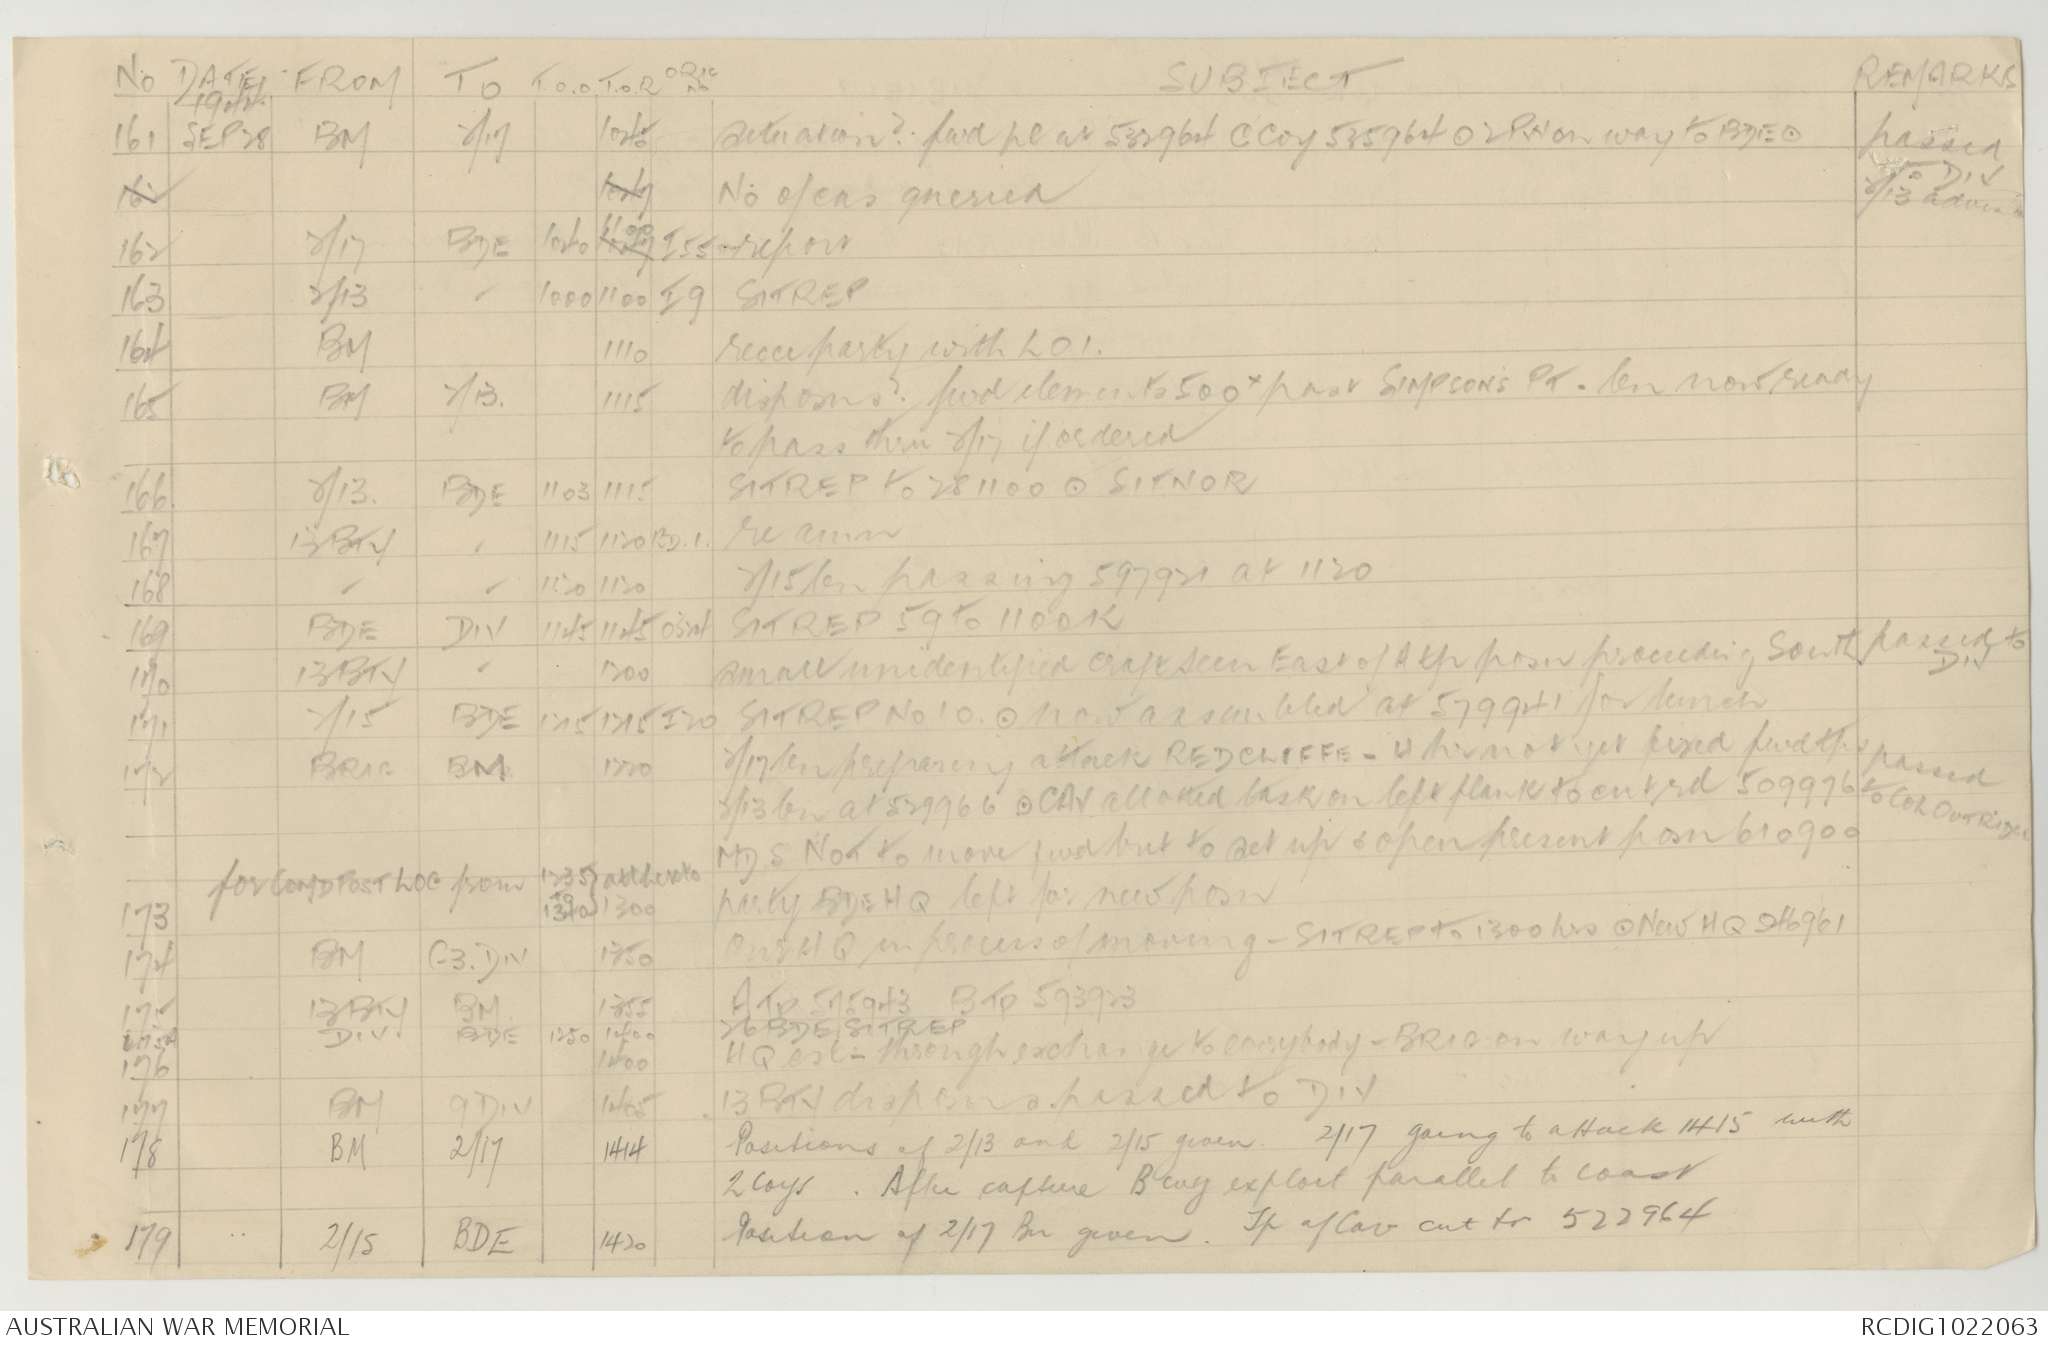 No DATE FROM TO T.O.O T.O.R ORIG No SUBJECT REMARKS
161 SEP 28 BM 2/17 1045 situation? fwd pl at 532964 C Coy 535964 O 2 PW on way to BDE ⊙ passed to DIV
No of cas queried 2/13
162 2/17 BDE 1040 1100 I55 report
163 2/13 " 1000 1100 I9 SITREP
164 BM 1110 recce party with LO1.
165 BM 2/13. 1115 disposns? fwd elements 500x past SIMPSON'S PT. bn now ready
to pass thru 2/17 if ordered
166. 2/13. BDE 1103 1115 SITREP to 281100 ⊙ SITNOR
167 13 BTY " 1115 1120 BD.1. re ammn
168 " " 1120 1120 2/15 bn passing 597921 at 1120
169 BDE DIV 1145 1145 SITREP 59 to 1100K
170 13 BTY " 1200 small unidentified craft seen East of A tp posn proceeding South passed to DIV
171 2/15 BDE 1215 1215 I20 SITREP No 10. ⊙ now assembled at 579941 for lunch
172 BRIG BM 1220 2/17 bn preparing attack REDCLIFFE - H hr not yet fixed fwd tps passed
2/13 bn at 529966 ⊙ CAV allotted task on left flank to cut rd 509976 to Col OUTRIDGE
MDS NOT to move fwd but to set up & open present posn 610900
for COMD POST LOG from 1235 to 1340 att hereto
173 1300 party BDE HQ left for new posn
174 BM G3. DIV 1350 our HQ in process of moving - SITREP to 1300 hrs ⊙ New HQ 546961
175 13 BTY BM 1355 A Tp 575943 B Tp 593923
175A DIV. BDE 1250 1400 26 BDE SITREP
176 1400 HQ est - through exchange to everybody - BRIG on way up
177 BM 9 DIV 1405 13 BTY disposns passed to DIV
178 BM 2/17 1414 Positions of 2/13 and 2/15 given. 2/17 going to attack 1415 with
2 Coys. After capture B coy exploit parallel to coast
179 " 2/15 BDE 1420 Position of 2/17 Bn given. Tp of Cav cut to 522964
AUSTRALIAN WAR MEMORIAL
RCDIG1022063